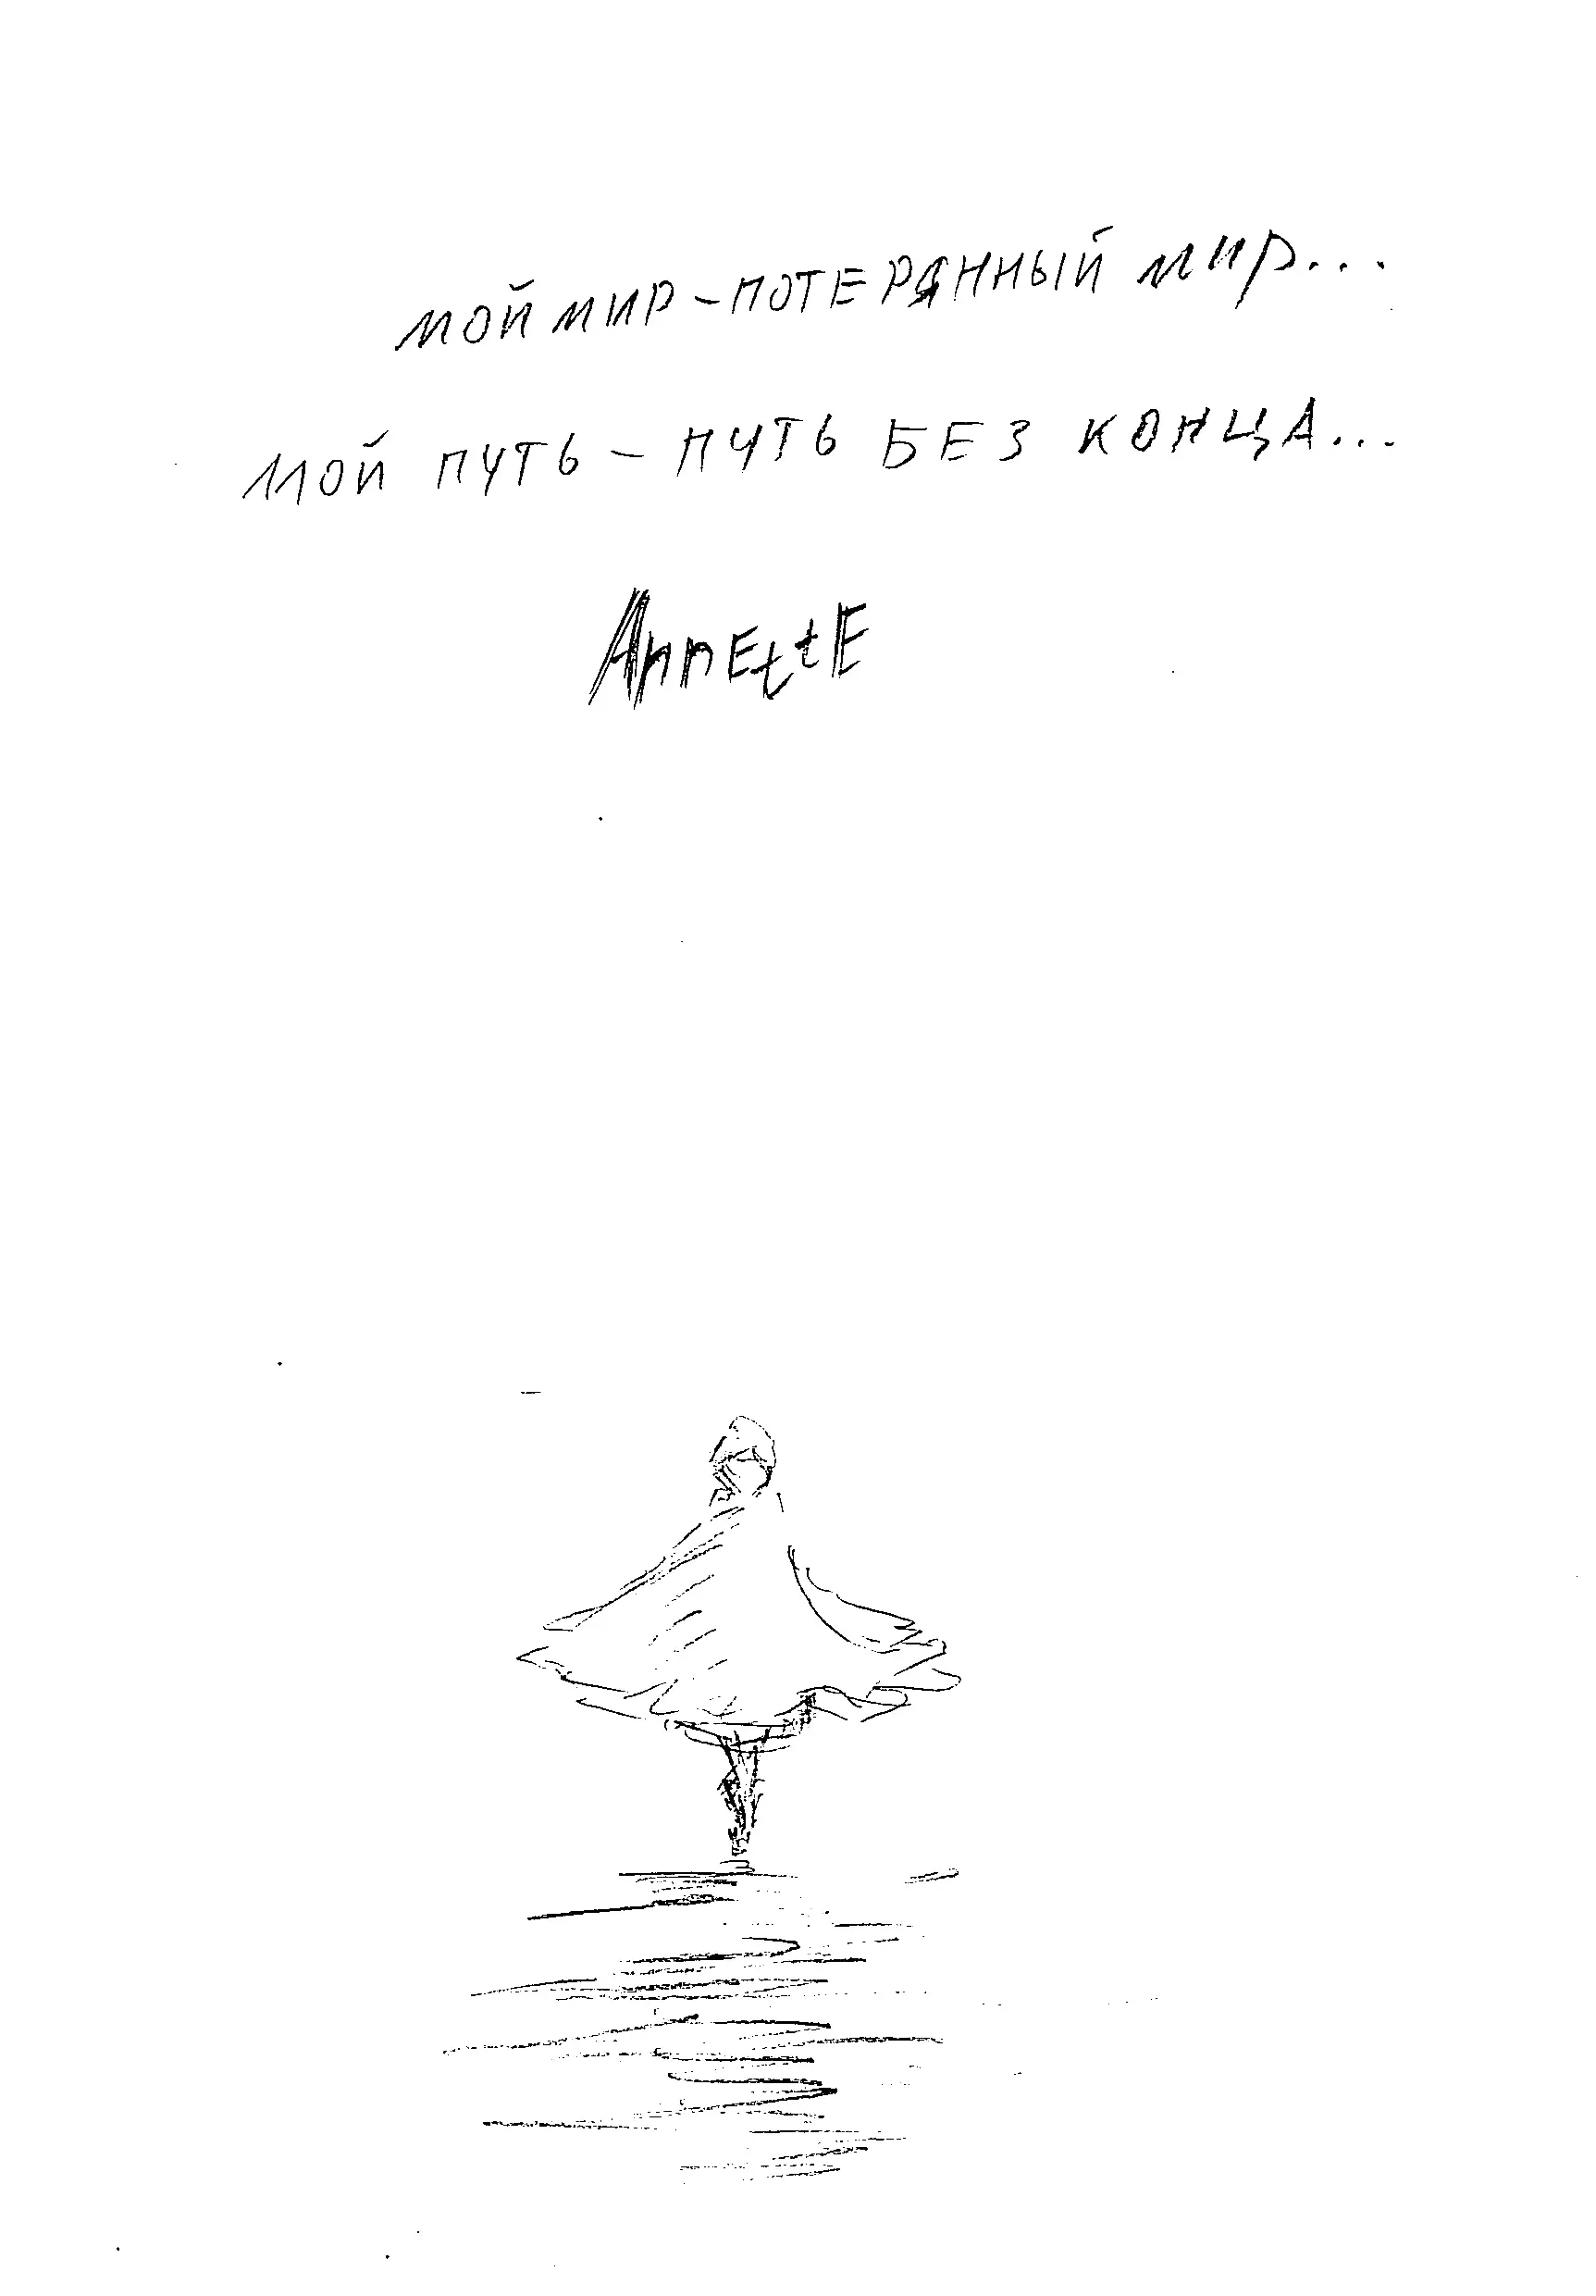 мой мир - потерянный мир...
мой путь - путь без конца...
AnnEttE